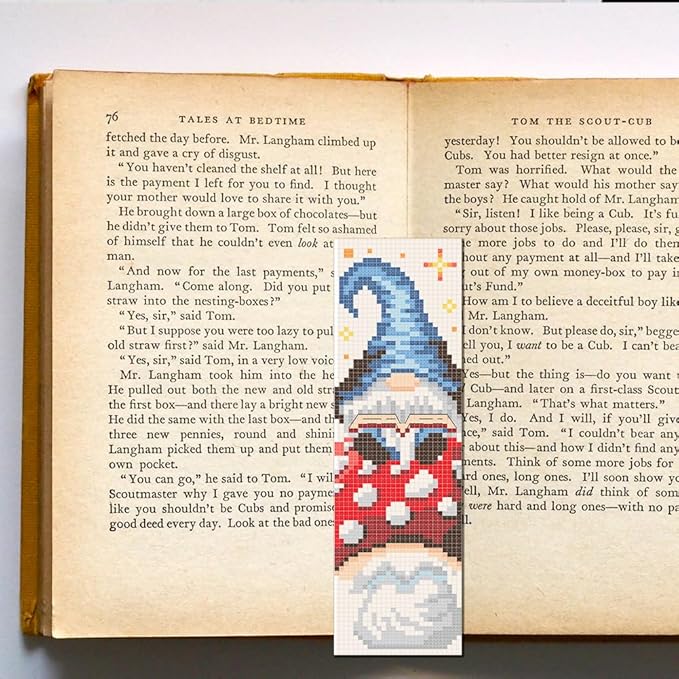 76 TALES AT BEDTIME
fetched the day before. Mr. Langham climbed up
it and gave a cry of disgust.
“You haven't cleaned the shelf at all! But here
is the payment I left for you to find. I thought
your mother would love to share it with you.”
He brought down a large box of chocolates—but
he didn't give them to Tom. Tom felt so ashamed
of himself that he couldn't even look at
man.
“And now for the last payments,”
Langham. “Come along. Did you put
straw into the nesting-boxes?”
“Yes, sir,” said Tom.
“But I suppose you were too lazy to pul
old straw first?” said Mr. Langham.
“Yes, sir,” said Tom, in a very low voic
Mr. Langham took him into the he
He pulled out both the new and old stra
the first box—and there lay a bright new s
He did the same with the last box—and th
three new pennies, round and shini
Langham picked them up and put them
own pocket.
“You can go,” he said to Tom. “I wil
Scoutmaster why I gave you no payme
like you shouldn't be Cubs and promis
good deed every day. Look at the bad one
TOM THE SCOUT-CUB
yesterday! You shouldn't be allowed to b
Cubs. You had better resign at once.”
Tom was horrified. What would the
master say? What would his mother say
the boys? He caught hold of Mr. Langham
“Sir, listen! I like being a Cub. It's fu
sorry about those jobs. Please, please, sir, g
me more jobs to do and I'll do them
without any payment at all—and I'll take
out of my own money-box to pay in
Fund.”
How am I to believe a deceitful boy lik
Mr. Langham.
I don't know. But please do, sir,” begge
ell you, I want to be a Cub. I can't bea
ed out.”
Yes—but the thing is—do you want
Cub—and later on a first-class Scout
Langham. “That's what matters.”
Yes, I do. And I will, if you'll give
nce,” said Tom. “I couldn't bear any
about this—and how I didn't find any
ments. Think of some more jobs for
ard ones, long ones. I'll soon show yo
ell, Mr. Langham did think of som
were hard and long ones—with no pa
ll.